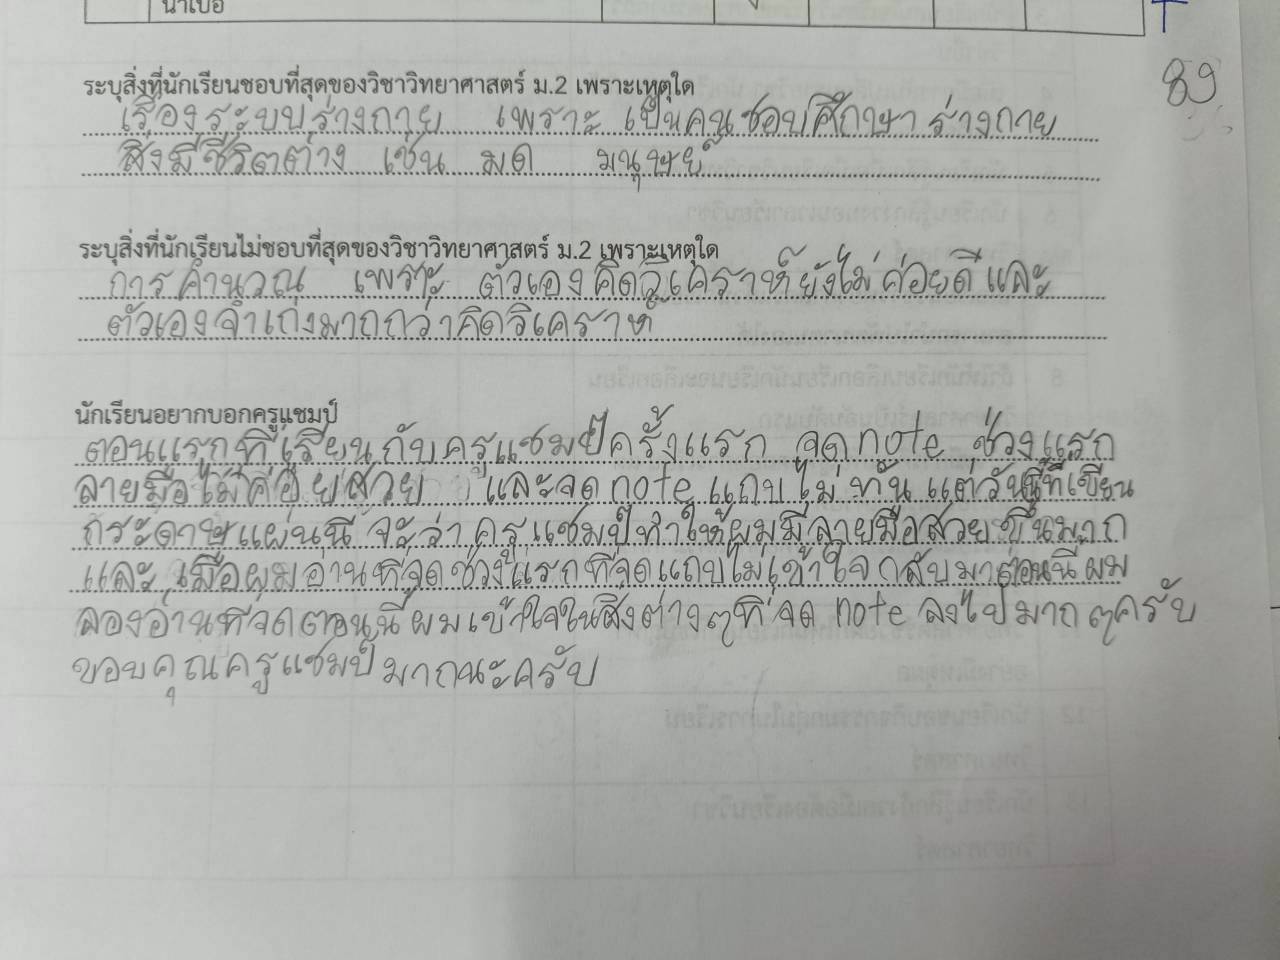 น่าเบื่อ
89
ระบุสิ่งที่นักเรียนชอบที่สุดของวิชาวิทยาศาสตร์ ม.2 เพราะเหตุใด
เรื่องระบบร่างกาย เพราะ เป็นคนชอบศึกษา ร่างกาย
สิ่งมีชีวิตต่าง เช่น มด มนุษย์
ระบุสิ่งที่นักเรียนไม่ชอบที่สุดของวิชาวิทยาศาสตร์ ม.2 เพราะเหตุใด
การคำนวณ เพราะ ตัวเองคิดวิเคราห์ยังไม่ค่อยดี และ
ตัวเองจำเก่งมากกว่าคิดวิเคราห์
นักเรียนอยากบอกครูแชมป์
ตอนแรกที่เรียนกับครูแชมป์ครั้งแรก จด note ช่วงแรก
ลายมือไม่ค่อยสวย และจด note แถบไม่ทัน แต่วันนี้ที่เขียน
กระดาษแผ่นนี้ จะว่า ครูแชมป์ทำให้ผมมีลายมือสวยขึ้นมาก
และ เมื่อผมอ่านที่จดช่วงแรกที่จดแถบไม่เข้าใจ กลับมาตอนนี้ผม
ลองอ่านที่จดตอนนี้ผมเข้าใจในสิ่งต่างๆที่จด note ลงไปมากๆครับ
ขอบคุณครูแชมป์มากนะครับ